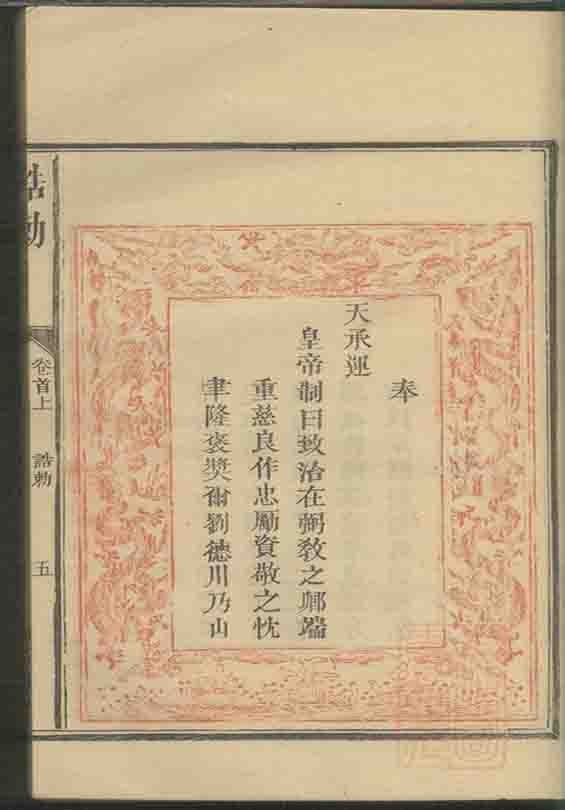 奉
天承運
皇帝制曰致治在弼教之鄰端
重慈良作忠勵資敬之忱
聿隆褒奬爾劉德川乃山
誥勅
卷首上
誥勅
五